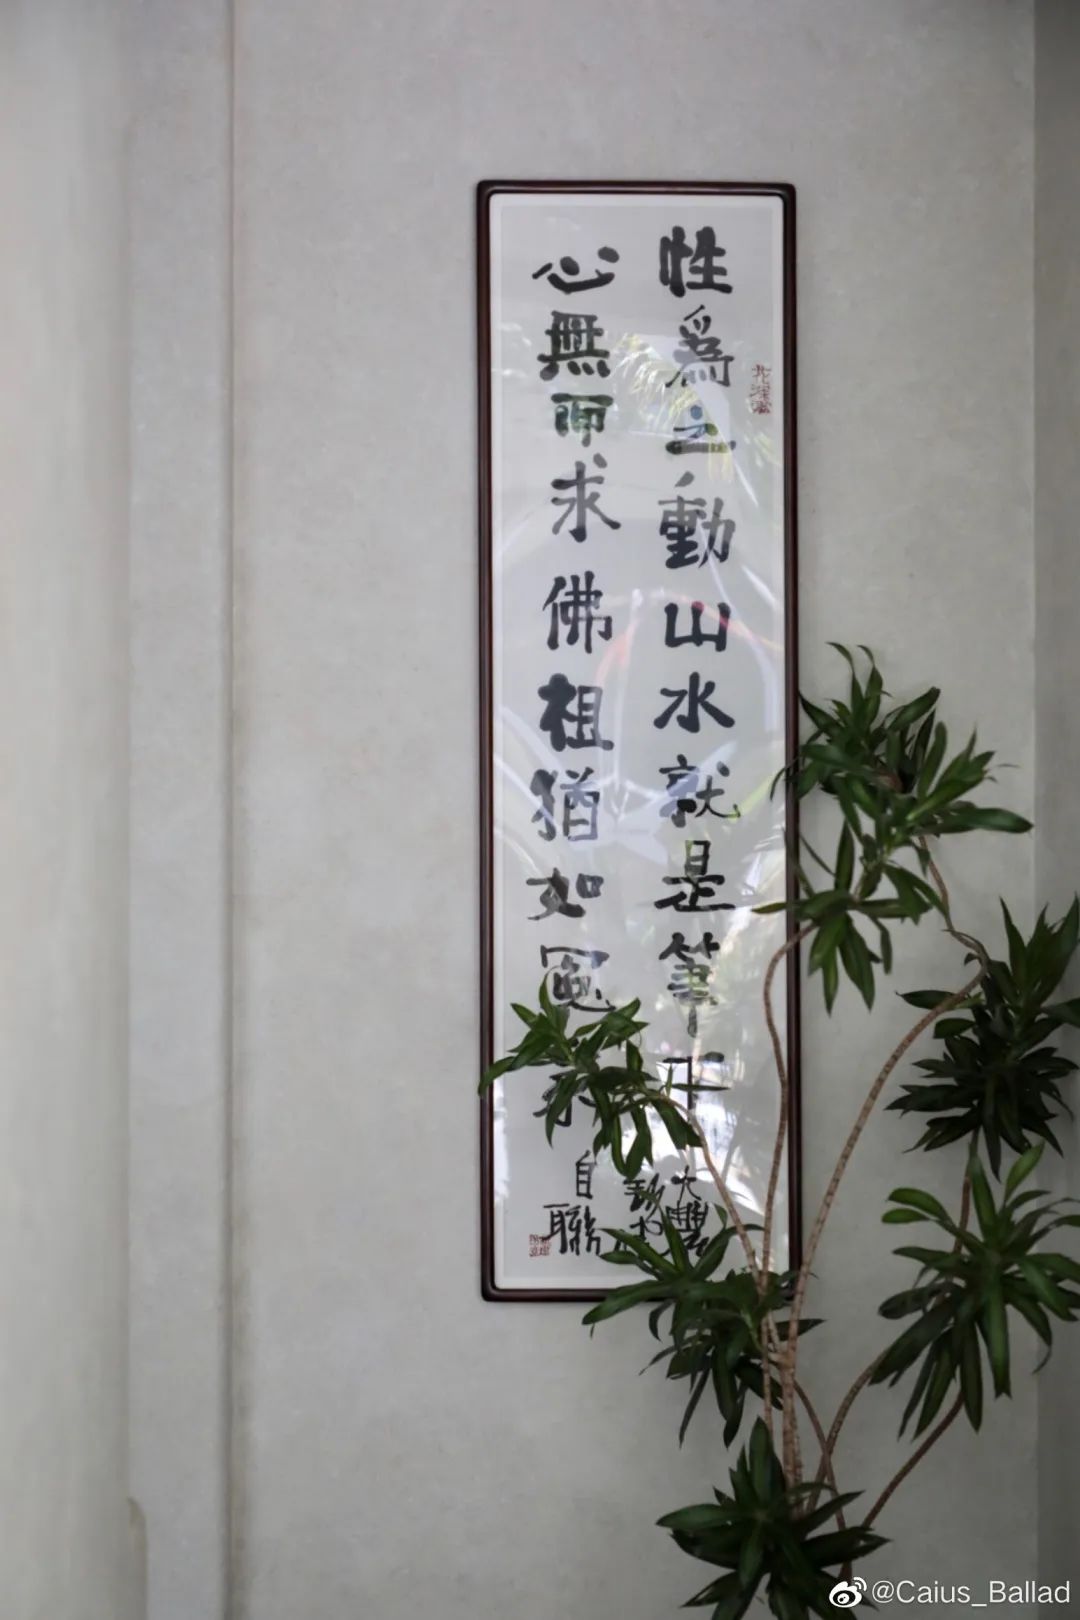 性為之動山水就是筆下
心無所求佛祖猶如冤
大豐
自聯
@Caius_Ballad